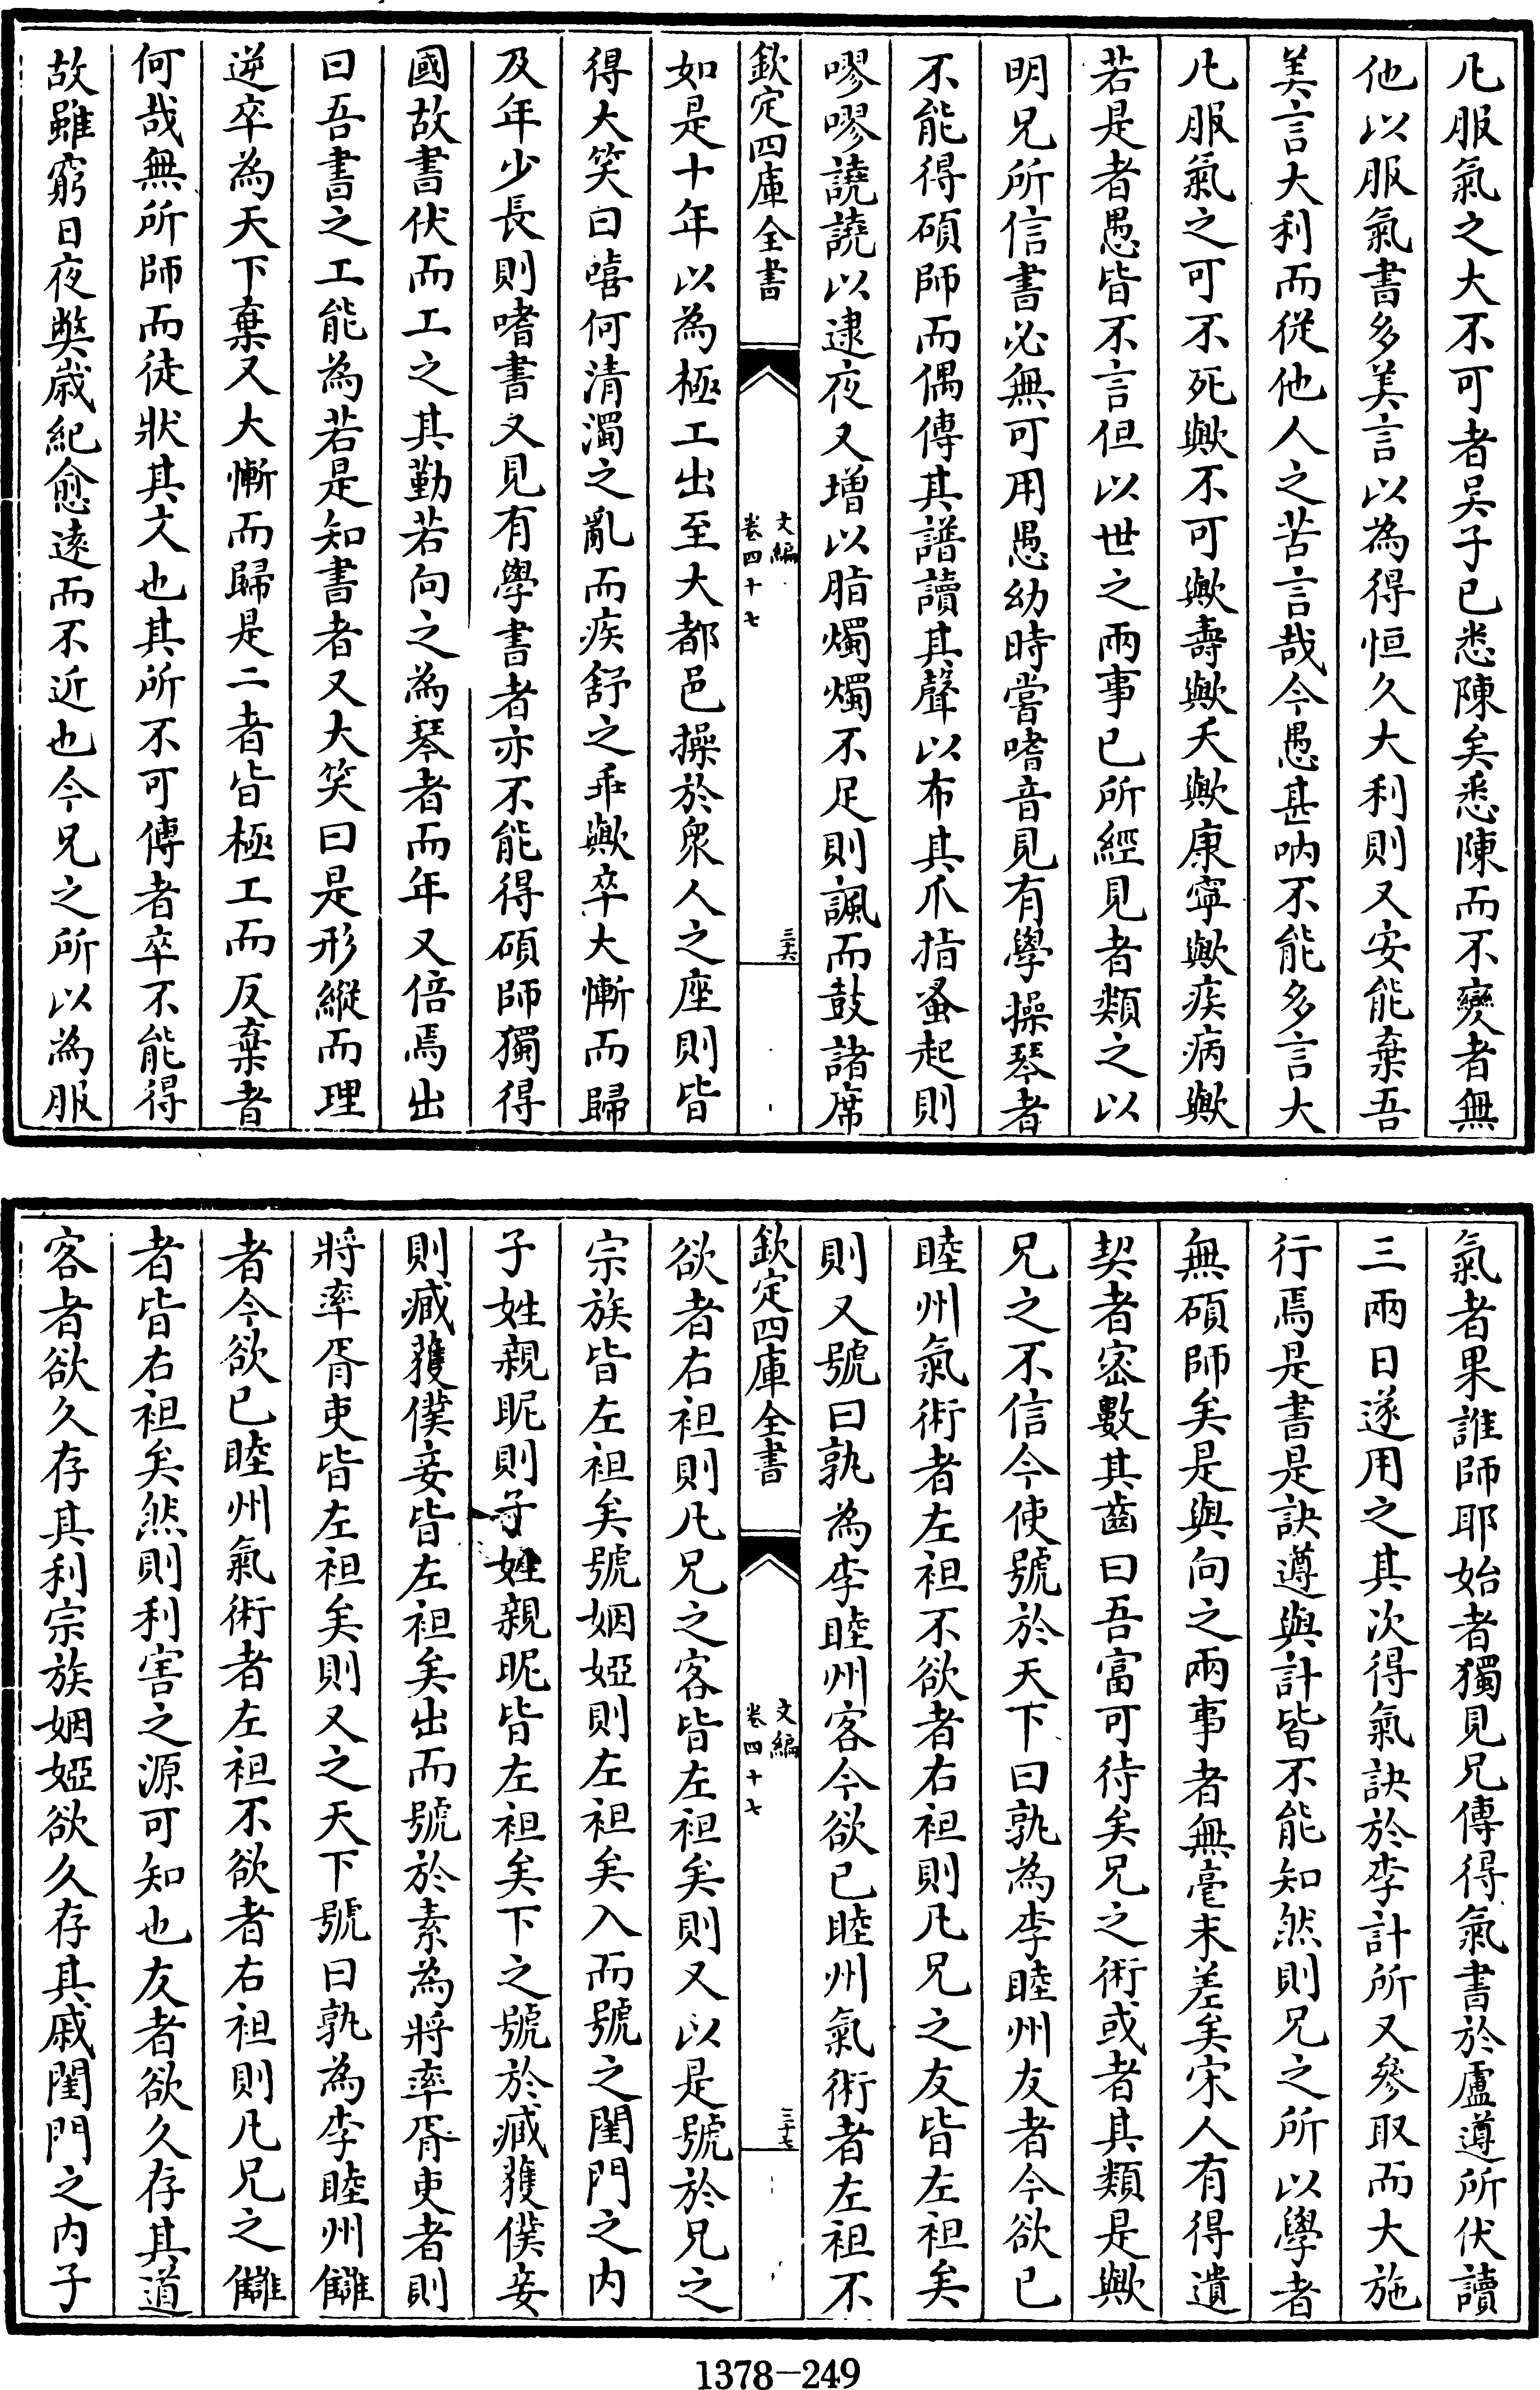 凡服氣之大不可者吴子已悉陳矣悉陳而不變者無
他以服氣書多美言以為得恒久大利則又安能棄吾
美言大利而從他人之苦言哉今愚甚吶不能多言大
凡服氣之可不死歟不可歟壽歟夭歟康寧歟疾病歟
若是者愚皆不言但以世之兩事已所經見者類之以
明兄所信書必無可用愚幼時嘗嗜音見有學操琴者
不能得碩師而偶傳其譜讀其聲以布其爪指蚤起則
嘐嘐譊譊以逮夜又增以脂燭燭不足則諷而鼓諸席
欽定四庫全書
文編
卷四十七
三十六
如是十年以為極工出至大都邑操於衆人之座則皆
得大笑曰嘻何清濁之亂而疾舒之乖歟卒大慚而歸
及年少長則嗜書又見有學書者亦不能得碩師獨得
國故書伏而工之其勤若向之為琴者而年又倍焉出
曰吾書之工能為若是知書者又大笑曰是形縱而理
逆卒為天下棄又大慚而歸是二者皆極工而反棄者
何哉無所師而徒狀其文也其所不可傳者卒不能得
故雖窮日夜獘歲紀愈逺而不近也今兄之所以為服
氣者果誰師耶始者獨見兄傳得氣書於盧遵所伏讀
三兩日遂用之其次得氣訣於李計所又參取而大施
行焉是書是訣遵與計皆不能知然則兄之所以學者
無碩師矣是與向之兩事者無毫末差矣宋人有得遺
契者密數其齒曰吾富可待矣兄之術或者其類是歟
兄之不信今使號於天下曰孰為李睦州友者今欲已
睦州氣術者左袒不欲者右袒則凡兄之友皆左袒矣
則又號曰孰為李睦州客今欲已睦州氣術者左袒不
欽定四庫全書
文編
卷四十七
三十七
欲者右袒則凡兄之客皆左袒矣則又以是號於兄之
宗族皆左袒矣號姻婭則左袒矣入而號之閨門之内
子姓親昵則子姓親昵皆左袒矣下之號於臧獲僕妾
則臧獲僕妾皆左袒矣出而號於素為將率胥吏者則
將率胥吏皆左袒矣則又之天下號曰孰為李睦州讎
者今欲已睦州氣術者左袒不欲者右袒則凡兄之讎
者皆右袒矣然則利害之源可知也友者欲久存其道
客者欲久存其利宗族姻婭欲久存其戚閨門之内子
1378-249